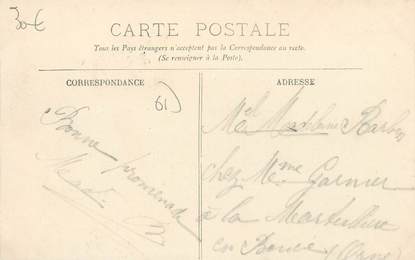 30€
CARTE POSTALE
Tous les Pays étrangers n'acceptent pas la Correspondance au recto.
(Se renseigner à la Poste).
CORRESPONDANCE
ADRESSE
61
Bonne promenade
Mad. B
Mel Madeleine
chez Mme Garnier
à la
en (Orne)